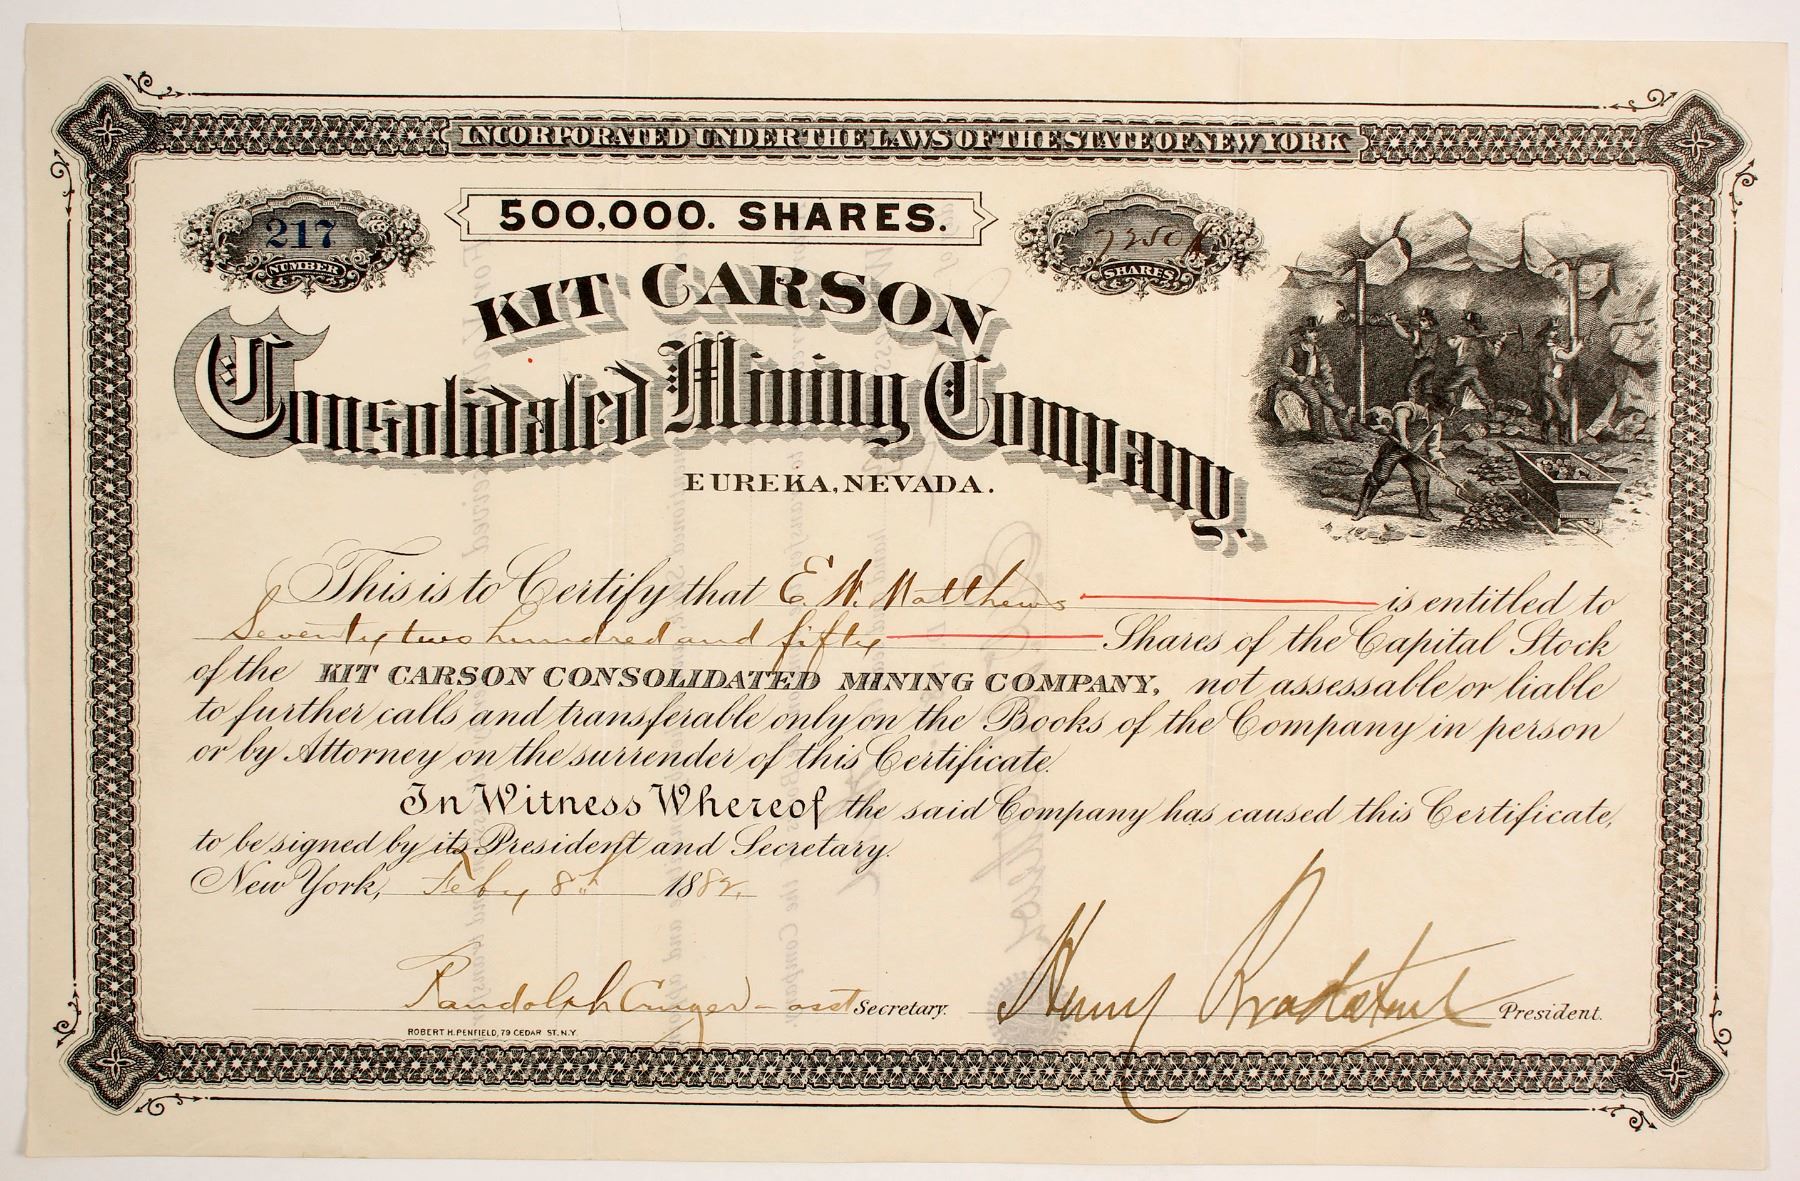 INCORPORATED UNDER THE LAWS OF THE STATE OF NEW YORK
217
NUMBER
500,000. SHARES.
7250
SHARES
KIT CARSON
Consolidated Mining Company.
EUREKA, NEVADA.
This is to Certify that E. W. Matthews is entitled to
Seventy two hundred and fifty Shares of the Capital Stock
of the KIT CARSON CONSOLIDATED MINING COMPANY, not assessable or liable
to further calls and transferable only on the Books of the Company in person
or by Attorney on the surrender of this Certificate.
In Witness Whereof the said Company has caused this Certificate,
to be signed by its President and Secretary.
New York, Feby 8th 1882.
Randolph Cruger - asst Secretary.
Henry President.
ROBERT H. PENFIELD, 79 CEDAR ST. N.Y.